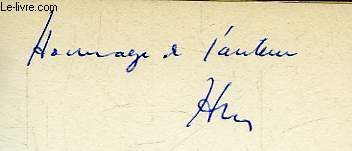 Le-livre.com
Hommage de l'auteur